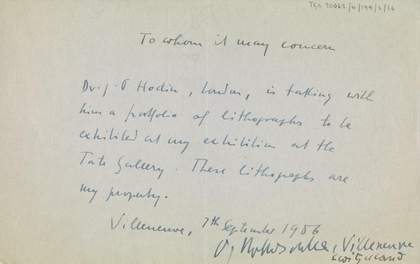 TGA 20062/4/199/2/16
To whom it may concern
Dr J-P Hodin, London, is taking with
him a portfolio of lithographs to be
exhibited at my exhibition at the
Tate Gallery. These lithographs are
my property.
Villeneuve, 7th September 1986
Villeneuve
Switzerland